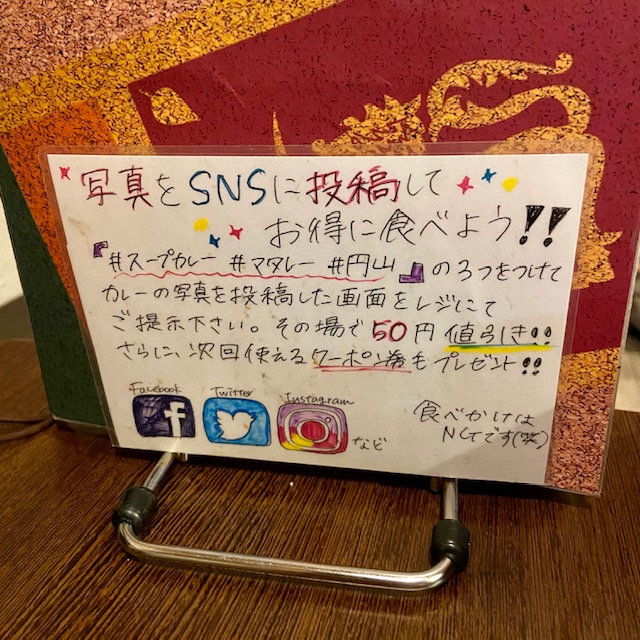 写真をSNSに投稿して
お得に食べよう!!
『#スープカレー #マタレー #円山』の3つをつけて
カレーの写真を投稿した画面をレジにて
ご提示下さい。その場で50円値引き!!
さらに、次回使えるクーポン券もプレゼント!!
Facebook Twitter Instagram
f
など
食べかけは
NGです(笑)